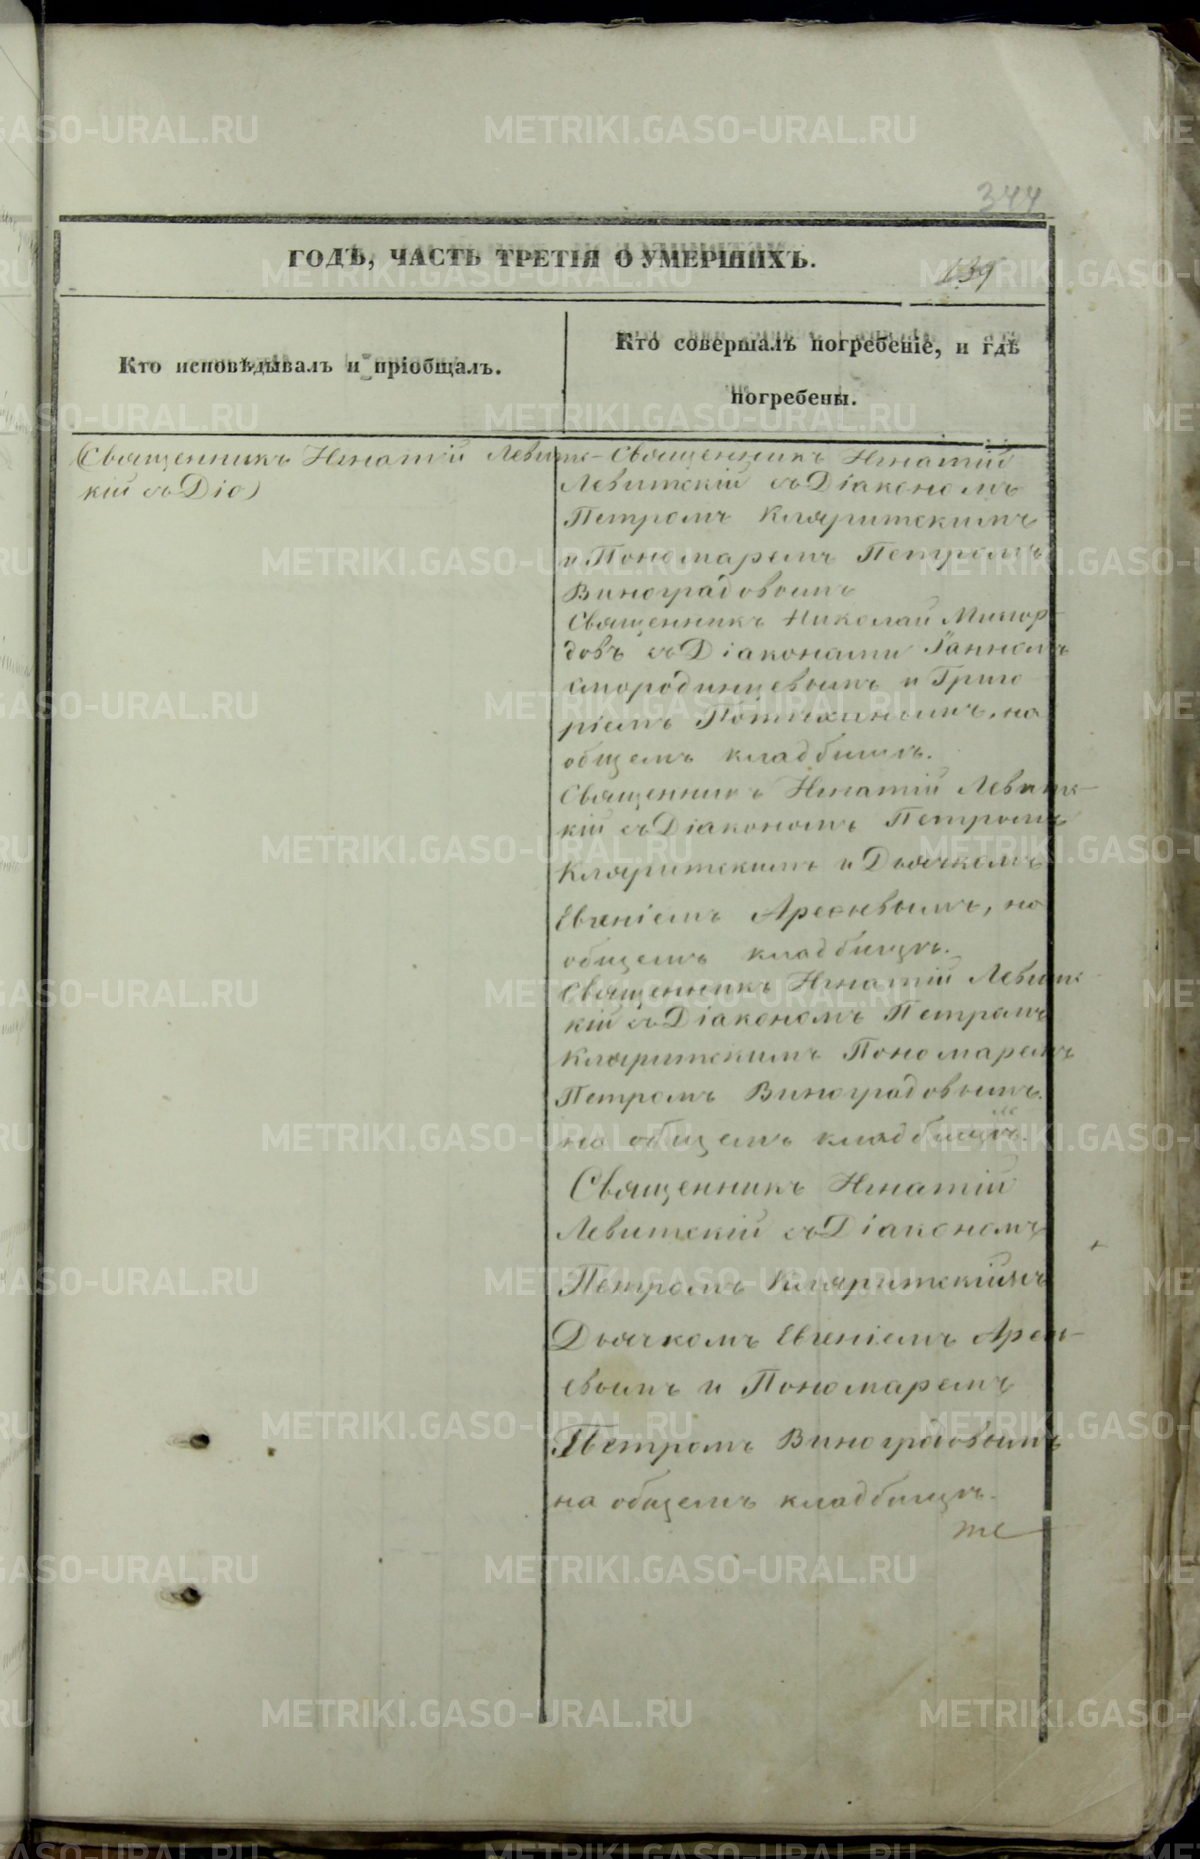 344
ГОДЪ, ЧАСТЬ ТРЕТІЯ О УМЕРШИХЪ.
139
Кто исповѣдывалъ и пріобщалъ.
Кто совершалъ погребеніе, и гдѣ
погребены.
(Священникъ Игнатій Левит-
кій съ Діо)
Священникъ Игнатій
Левитскій съ Діакономъ
Петромъ Кляритскимъ
и Пономаремъ Петромъ
Виноградовымъ
Священникъ Николай
довъ съ Діаконами Іанномъ
Смородинцевымъ и Григо
ріемъ на
общемъ кладбищѣ.
Священникъ Игнатій Левитс-
кій съ Діакономъ Петромъ
Кляритскимъ и Дьячкомъ
Евгеніемъ на
общемъ кладбищѣ.
Священникъ Игнатій Левитс
кій съ Діакономъ Петромъ
Кляритскимъ Пономаремъ
Петромъ Виноградовымъ.
на общемъ кладбищѣ.
Священникъ Игнатій
Левитскій съ Діакономъ
Петромъ Кляритскимъ
Дьячкомъ Евгеніемъ
евымъ и Пономаремъ
Петромъ Виноградовымъ
на общемъ кладбищѣ.
METRIKI.GASO-URAL.RU